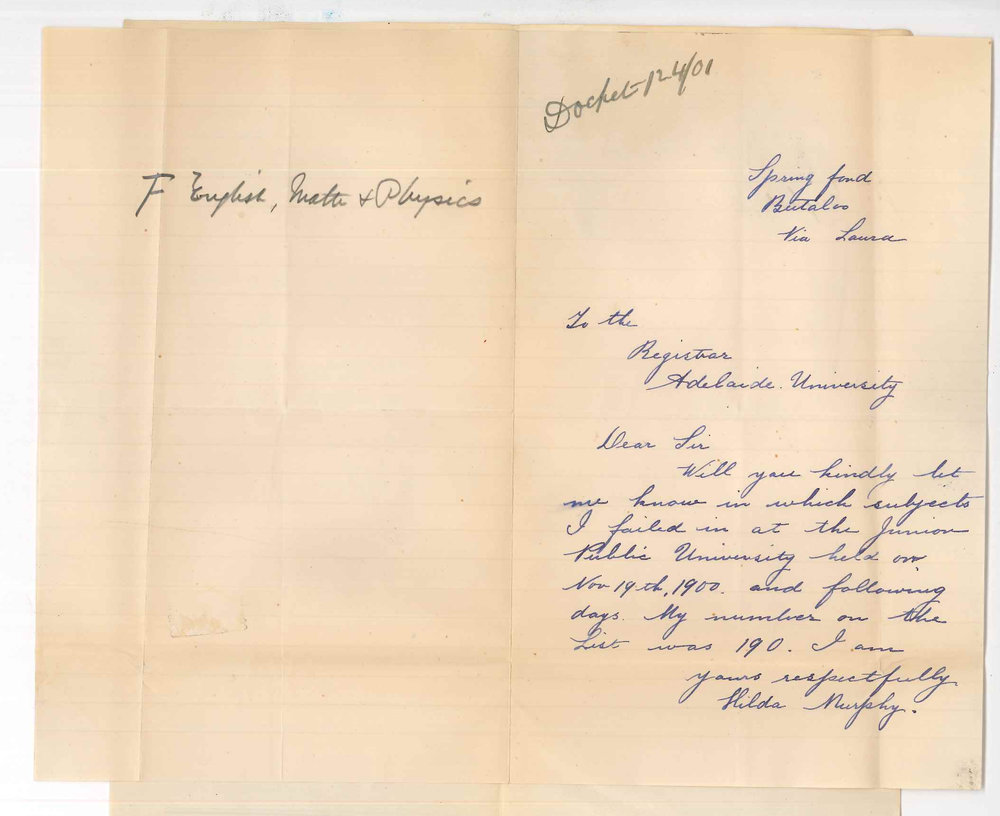 F English, Math & Physics
Docket 124/01
Spring fond
Beetaloo
Via Laura
To the
Registrar
Adelaide. University
Dear Sir
Will you kindly let
me know in which subjects
I failed in at the Junior
Public University held on
Nov 19th, 1900. and following
days. My number on the
List was 190. I am
yours respectfully
Hilda Murphy.